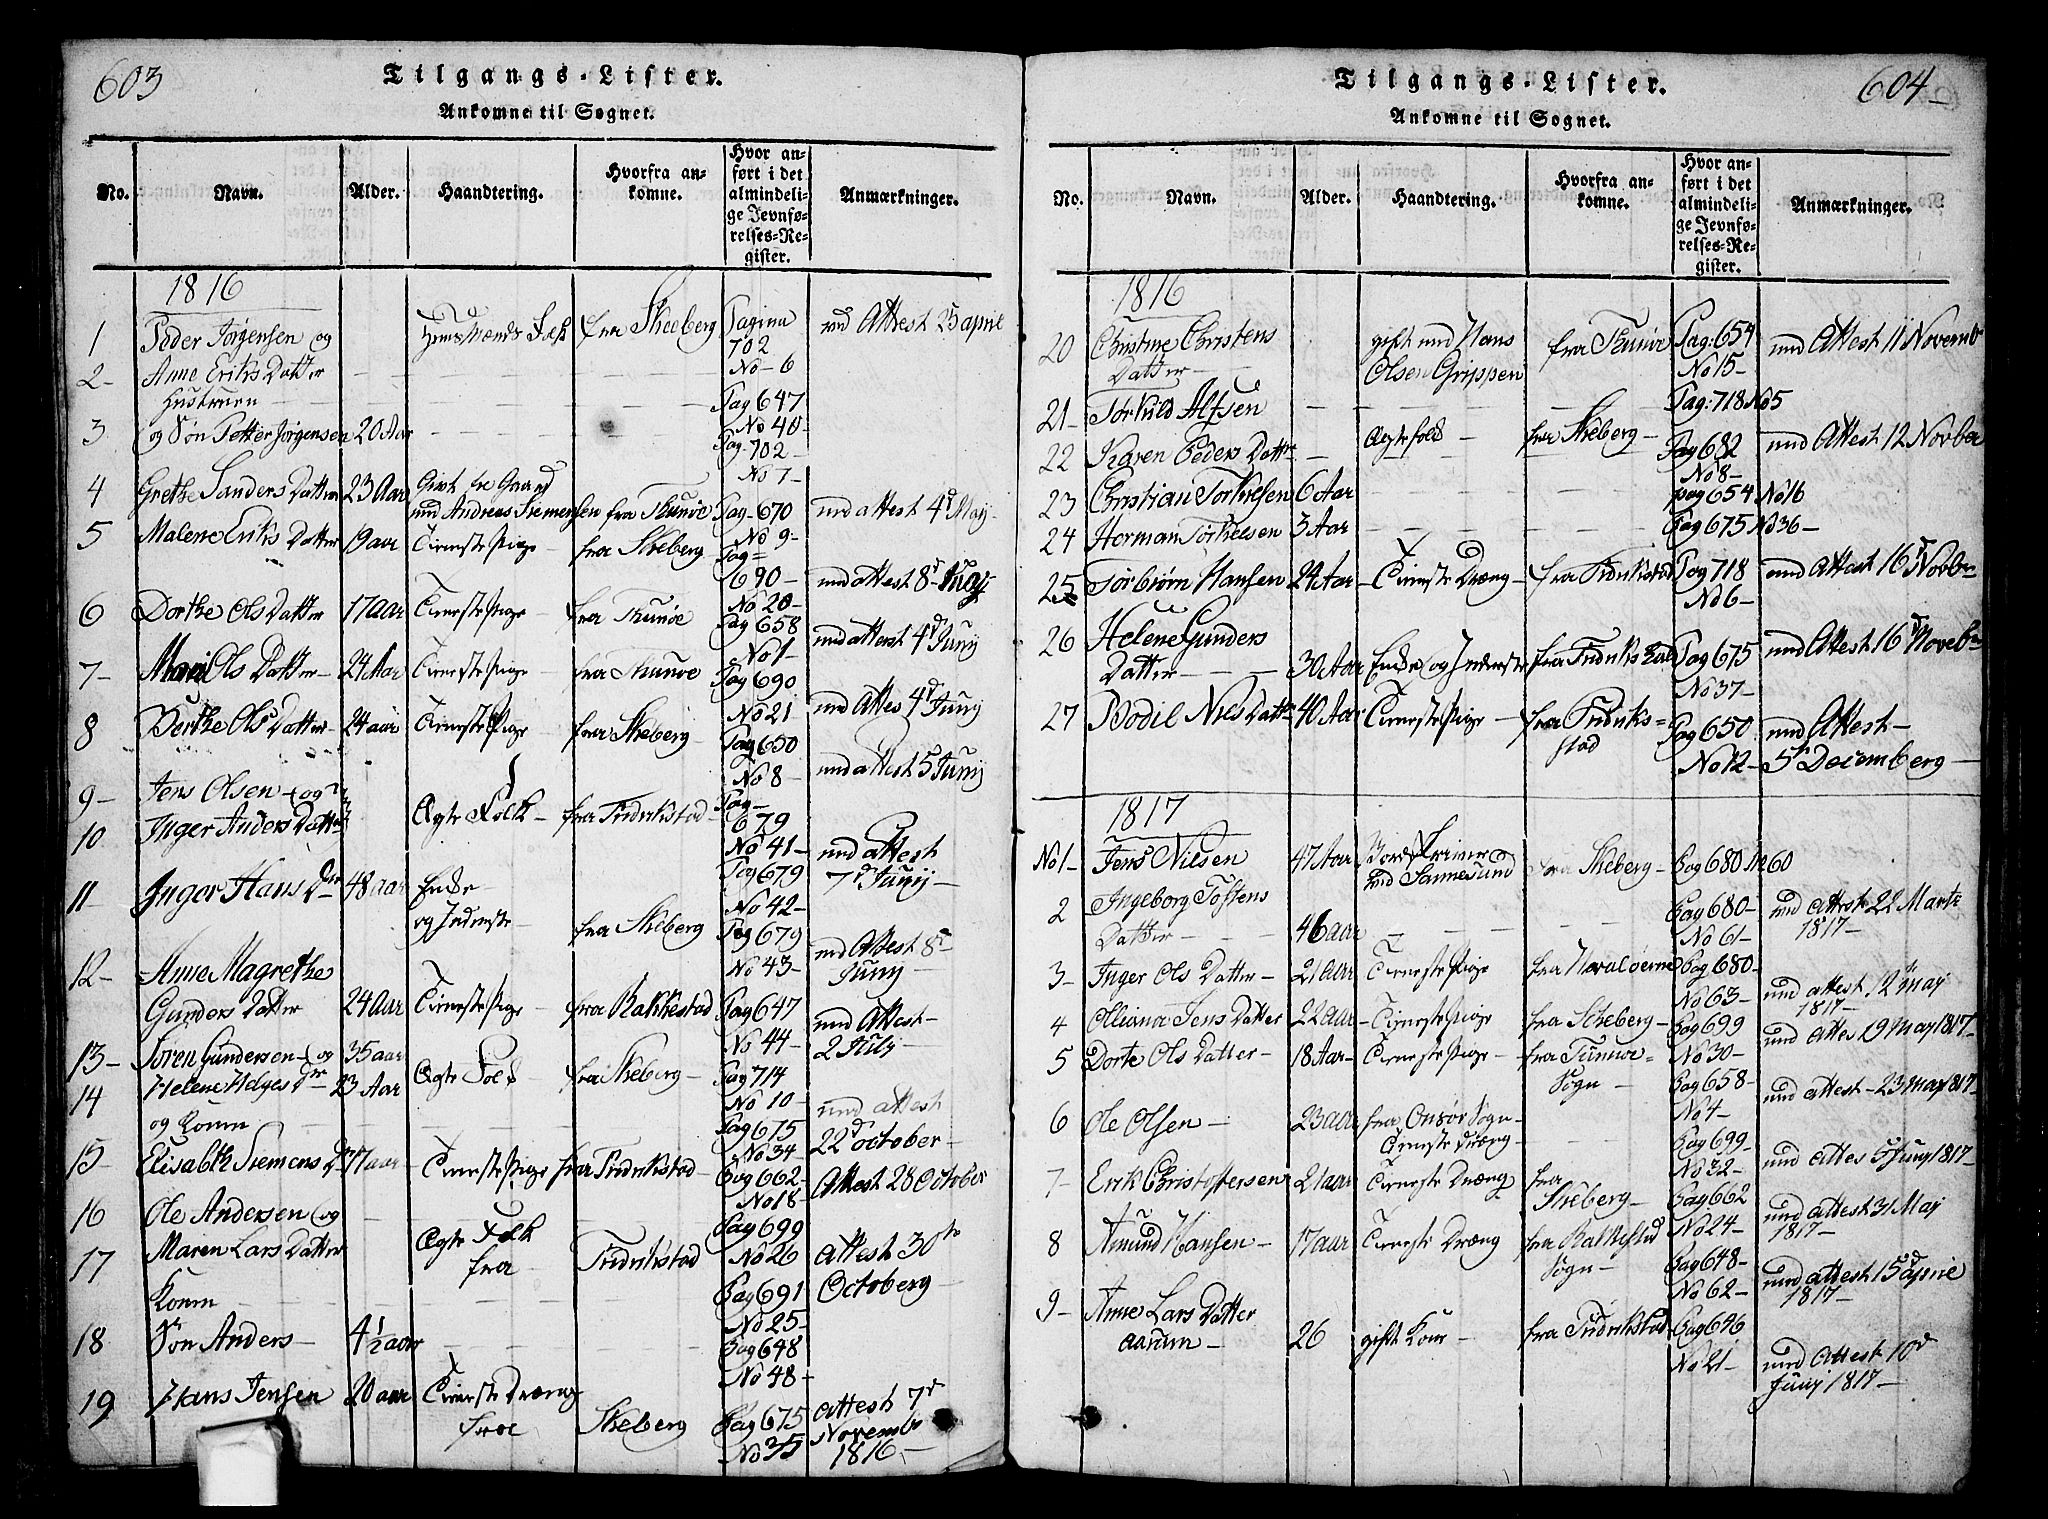 603
Tilgangs-Lister.
Ankomne til Sognet.
No. Navn. Alder. Haandtering. Hvorfra ankomne. Hvor anført i det almindelige Jevnførelses-Register. Anmærkninger.
1816
1 Peder Jørgensen og Huusmands Folk fra Skeberg Pagina 702 No 6 md Attest 25 april
2 Anne Eriks Datter Hustruen Pag 647 No 40
3 og Søn Petter Jørgensen 20 Aar Pag 702 No 7
4 Grethe Sanders Datter 23 Aar Givt med Andreas Siemensen fra Thunøe Pag 670 No 9 md attest 4d Maij
5 Malene Eriks Datter 19 aar Tieneste Pige fra Skeberg Pag 690 No 20 md attest 8d
6 Dorthe Ols Datter 17 aar Tieneste Pige fra Thunøe Pag 658 No 1 md attest 4d Junij
7 Mari Ols Datter 24 Aar Tieneste Pige fra Thunøe Pag 690 No 21 md Attes 4d Junij
8 Berthe Ols Datter 24 aar Tieneste Pige fra Skeberg Pag 650 No 8 md attest 5d Junij
9 Jens Olsen og
10 Inger Anders Datter Ægte Folk fra Fridrikstad Pag 679 No 41 Pag 679 No 42 md attest 7d Junij
11 Inger Hans Dr 48 aar Enke og Inderste fra Skeberg Pag 679 No 43 md Attest 8d Junij
12 Anne Magrethe Gunders Datter 24 Aar Tieneste Pige fra Rakkestad Pag 647 No 44 md Attest 2 July
13 Søren Gundersen og 35 aar Ægte Folk fra Skeberg Pag 714 No 10 md attest 22d october
14 Helene Helges Dr 23 Aar og Konen Pag 675 No 34
15 Elisabth Siemens Dr 17 aar Tieneste Pige fra Fridrikstad Pag 662 No 18 Attest 28 October
16 Ole Andersen og Ægte Folk fra Fridrikstad Pag 699 No 26 attest 30te Octoberg
17 Maren Lars Datter Konen Pag 691 No 25
18 Søn Anders 4 1/2 aar Pag 648 No 48
19 Hans Jensen 20 aar Tieneste Dræng fra Skeberg Pag 675 No 35 attest 7d Novemb 1816
604
Tilgangs-Lister.
Ankomne til Sognet.
No. Navn. Alder. Haandtering. Hvorfra ankomne. Hvor anført i det almindelige Jevnførelses-Register. Anmærkninger.
1816
20 Christine Christens Datter gift med Hans Olsen Grippen fra Thunøe Pag: 654 No 15 md Attest 11 Novemb
21 Torkild Alfsen Pag: 718 No 5
22 Karen Peders Dattr Ægtefold fra Skeberg Pag 682 No 8 md Attest 12 Novber
23 Christian Torkelsen 6 Aar pag 654 No 16
24 Herman Torkelsen 3 Aar Pag 675 No 36
25 Torbiørn Hansen 24 Aar Tieneste Dræng fra Fridrikstad Pag 718 No 6 md Attest 16 Novber
26 Helene Gunders Datter 30 Aar Enke og Inderste fra Fridriks Pag 675 No 37 md Attest 16
27 Bodil Niels Dattr 40 Aar Tieneste Pige fra Fridrikstad Pag 650 No 12 md Attest 5d Decemberg
1817
No 1 Jens Nielsen 47 Aar ved Sannesund fra Skeberg Pag 680 No 60
2 Ingeborg Tostens Datter 46 aar Pag 680 No 61 md attest 22 Marts 1817
3 Inger Ols Datter 21 Aar Tieneste Pige fra Hvaløerne Pag 680 No 63 md attest 12 maij 1817
4 Olliana Jens Datter 22 aar Tieneste Pige fra Scheberg Pag 699 No 30 md attes 19 Maij 1817
5 Dorte Ols Datter 18 Aar Tieneste Pige fra Tunøe Sogn Pag 658 No 4 md attest 23 maij 1817
6 Ole Olsen 23 aar fra Onsør Sogn Tieneste Dræng Pag 699 No 32 md attes 5 Junij 1817
7 Erik Christoffersen 21 aar Tieneste Dræng fra Skeberg Pag 662 No 24 md attest 31 Maij 1817
8 Amund Hansen 17 aar Tieneste Dræng fra Rakkestad Sogn Pag 648 No 62 md attest 15d aprie 1817
9 Anne Lars Datter aarum 26 gift Kone fra Fridrikstad Pag 646 No 21 md Attest 10d Junij 1817